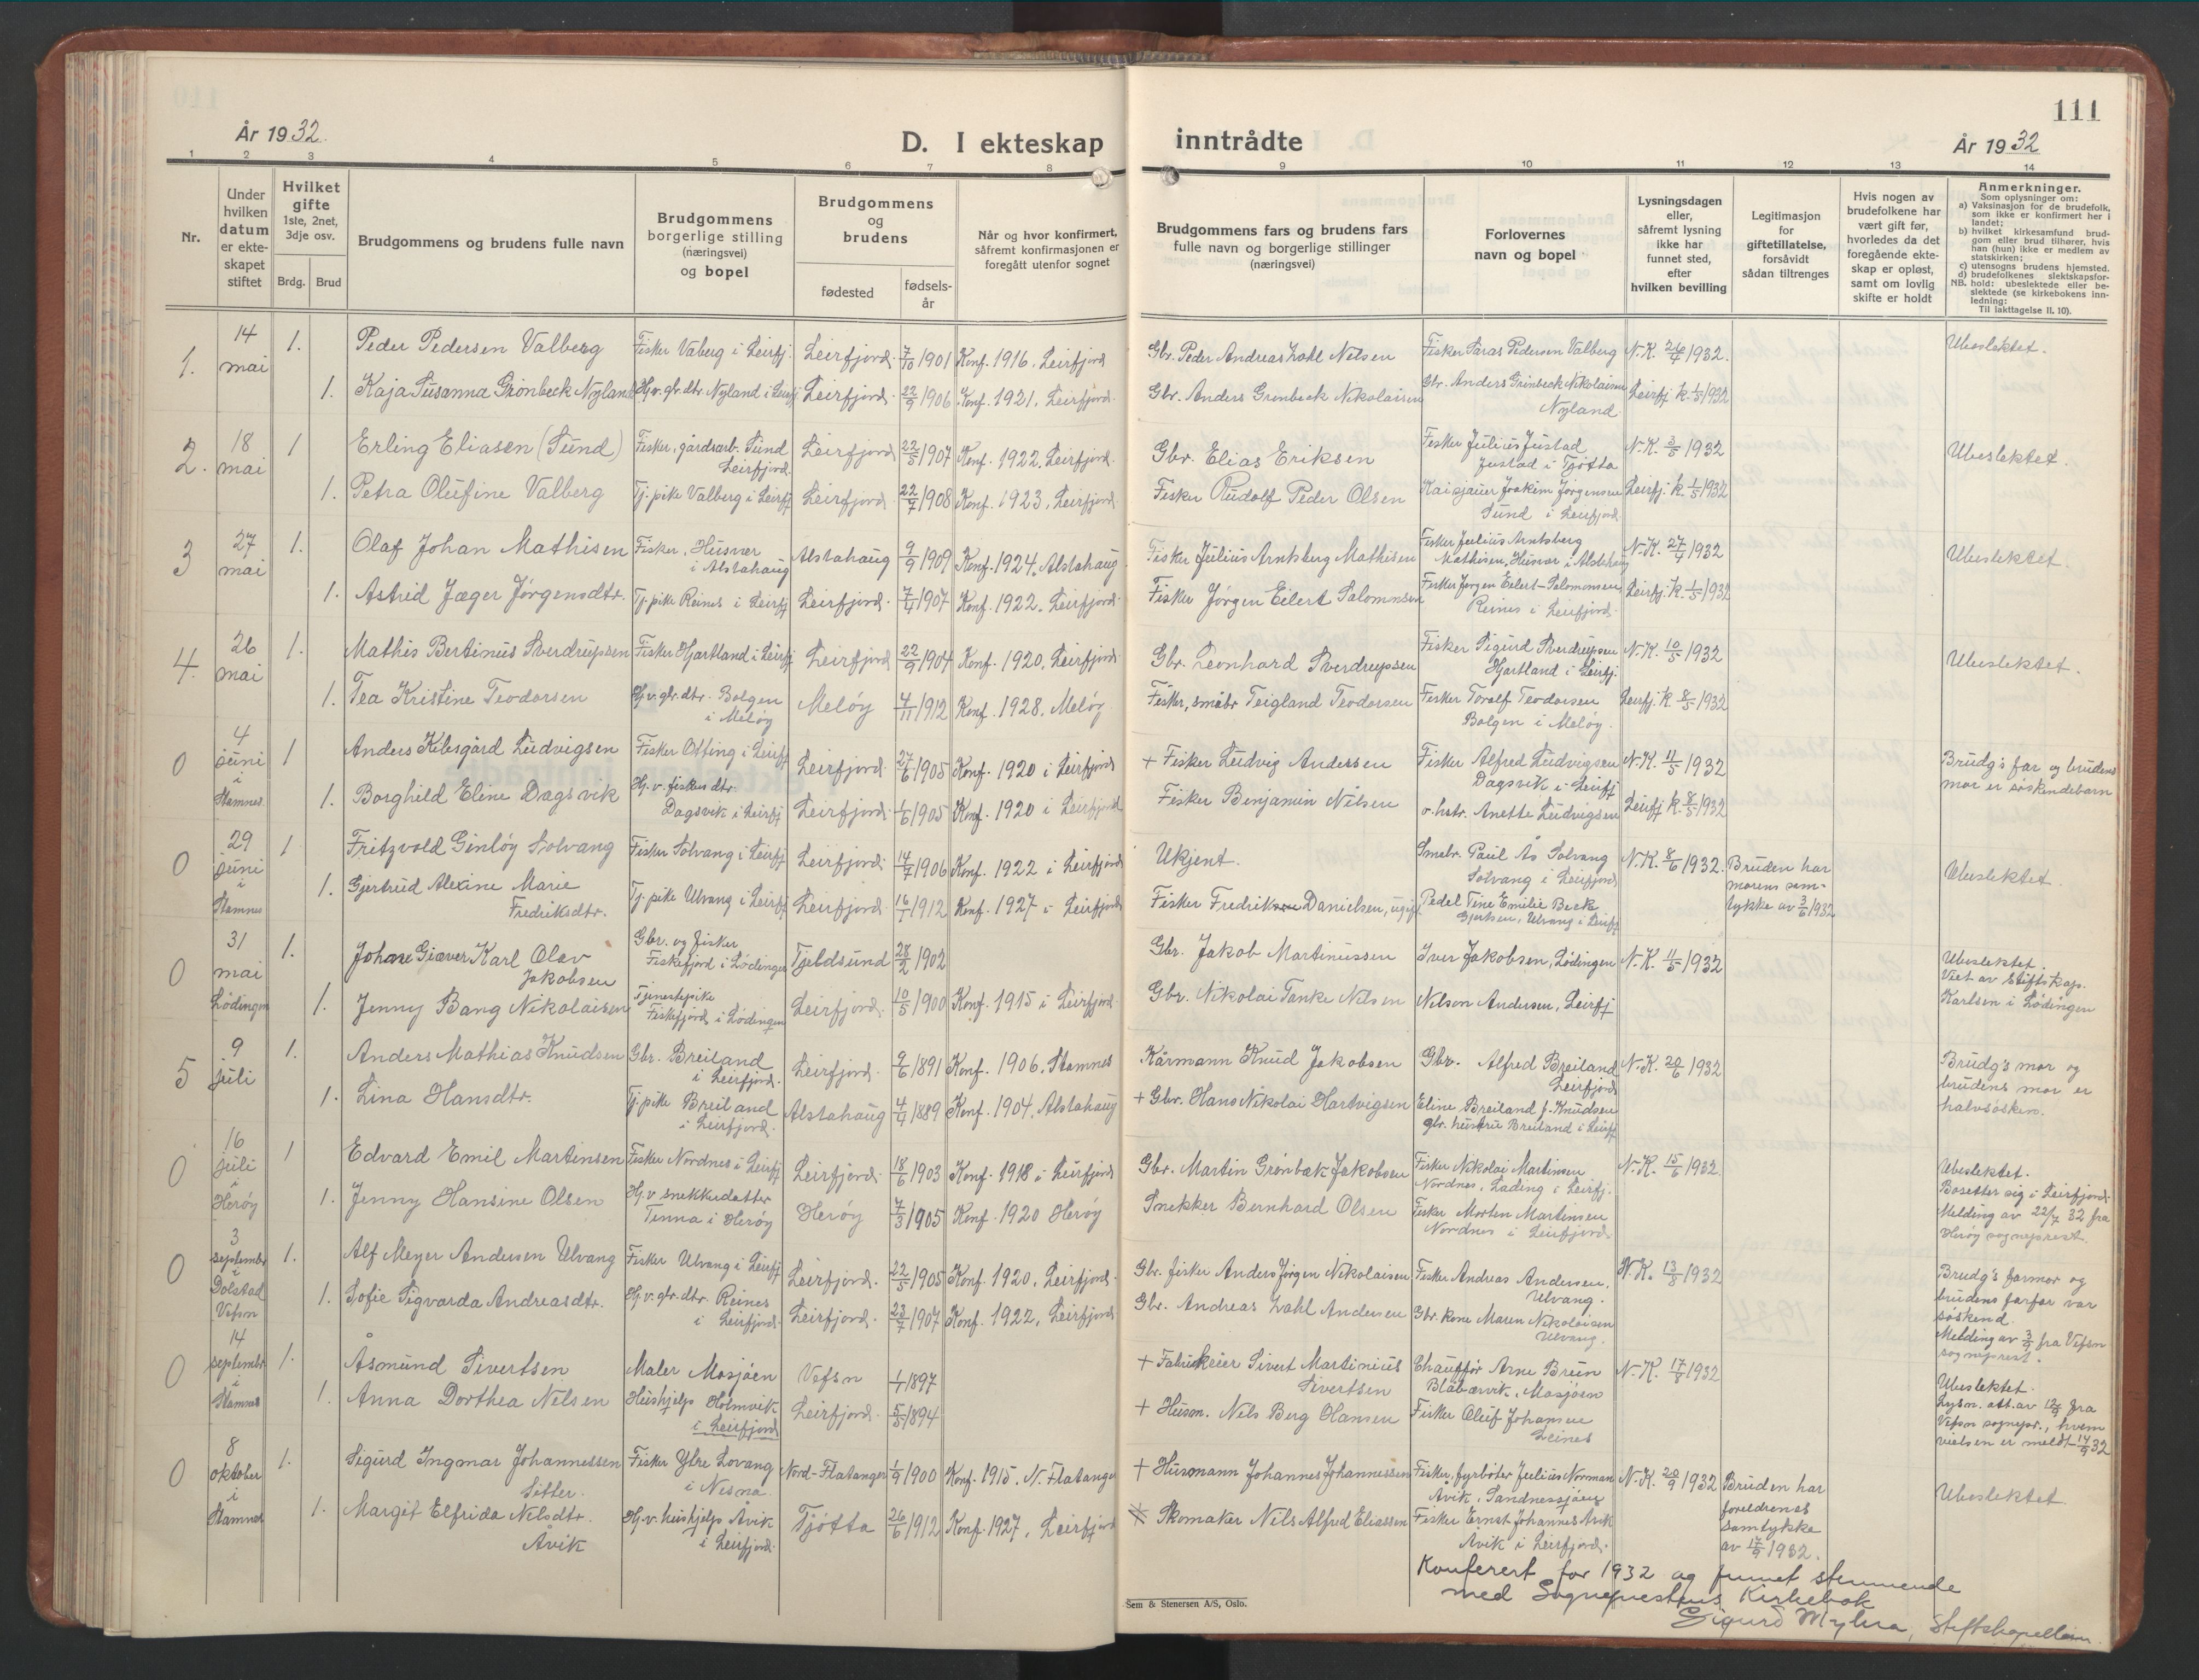 111
År 1932.
D. I ekteskap inntrådte
År 1932
1 2 3 4 5 6 7 8 9 10 11 12 13 14
Nr.
Under hvilken datum er ekte-skapet stiftet
Hvilket gifte
1ste, 2net, 3dje osv.
Brdg. Brud
Brudgommens og brudens fulle navn
Brudgommens borgerlige stilling (næringsvei) og bopel
Brudgommens og brudens
fødested
fødsels-år
Når og hvor konfirmert, såfremt konfirmasjonen er foregått utenfor sognet
Brudgommens fars og brudens fars fulle navn og borgerlige stillinger (næringsvei)
Forlovernes navn og bopel
Lysningsdagen eller, såfremt lysning ikke har funnet sted, efter hvilken bevilling
Legitimasjon for giftetillatelse, forsåvidt sådan tiltrenges
Hvis nogen av brudefolkene har vært gift før, hvorledes da det foregående ekte-skap er opløst, samt om lovlig skifte er holdt
Anmerkninger.
Som oplysninger om:
a) Vaksinasjon for de brudefolk, som ikke er konfirmert her i landet;
b) hvilket kirkesamfund brud-gom eller brud tilhører, hvis han (hun) ikke er medlem av statskirken;
c) utensogns brudens hjemsted.
d) brudefolkenes slektskapsfor-hold: ubeslektede eller be-slektede (se kirkebokens inn-ledning:
NB.
Til iakttagelse II. 10).
1. 14 mai 1. Peder Pedersen Valberg Fisker Vaberg i Leirfj. Leirfjord. 7/10 1901 Konf. 1916. Leirfjord Gbr. Peder Andreas Zahl Nilsen Fisker Saras Pedersen Valberg N.K. 26/4 1932. Ubeslektet.
1. Kaja Susanna Grønbeck Nyland Hj.v. gbr.dtr. Nyland i Leirfj Leirfjord. 22/9 1906 Konf. 1921. Leirfjord. Gbr. Anders Grønbeck Nikolaisen Gbr. Anders Grønbeck Nikolaisen Nyland. Leirfj k. 1/5 1932
2. 18 mai 1 Erling Eliasen (Sund) Fisker, gårdsarb. Sund Leirfjord. Leirfjord 22/5 1907 Konf. 1922. Leirfjord. Gbr. Elias Eriksen Fisker Julius Justad Justad i Tjøtta N.K. 3/5 1932 Ubeslektet.
1. Petra Olufine Valberg Tj. pike Valberg i Leirfj Leirfjord 22/7 1908 Konf. 1923. Leirfjord Fisker Rudolf Peder Olsen Kaisjauer Joakim Jørgensen Sund i Leirfjord Leirfj. k. 1/5 1932
3 27 mai 1. Olaf Johan Mathisen Fisker, Husvær i Alstahaug Alstahaug 9/9 1909 Konf. 1924. Alstahaug Fisker Julius Arntsberg Mathisen Fisker Julius Arntsberg Mathisen, Husvær i Alstahaug N.K. 27/4 1932 Ubeslektet.
1. Astrid Jæger Jørgensdtr. Tj. pike Reines i Leirfj Leirfjord. 7/4 1907 Konf. 1922. Leirfjord. Fisker Jørgen Eilert Salomonsen Fisker Jørgen Eilert Salomonsen Reines i Leirfjord. Leirfj. k. 1/5 1932
4. 26 mai 1. Mathis Bertinus Sverdrupsen Fisker Hjartland i Leirfj Leirfjord. 22/9 1904 Konf. 1920. Leirfjord. Gbr. Leonhard Sverdrupsen Fisker Sigurd Sverdrupsen Hjartland i Leirfj. N.K. 10/5 1932 Ubeslektet.
1. Tea Kristine Teodorsen Hj.v. gbr.dtr. Bolgen i Meløy Meløy 4/11 1912 Konf. 1928. Meløy Fisker, småbr Teigland Teodorsen Fisker Toralf Teodorsen Bolgen i Meløy. Leirfj. k. 8/5 1932
0 4 juni i Stamnes 1 Anders Kibsgård Ludvigsen Fisker Otting i Leirfj Leirfjord. 27/6 1905 Konf. 1920 i Leirfjord + Fisker Ludvig Andersen Fisker Alfred Ludvigsen Dagsvik i Leirfj N.K. 11/5 1932 Brudg's far og brudens mor er søskendebarn
1. Borghild Eline Dagsvik Hj.v. fiskerdtr. Dagsvik i Leirfj Leirfjord. 1/6 1905 Konf. 1920 i Leirfjord Fisker Benjamin Nilsen o. hstr. Anette Ludvigsen Leirfj k. 8/5 1932
0 29 juni i Stamnes 1 Fritzvold Ginløy Solvang Fisker Solvang i Leirfj Leirfjord. 14/7 1906 Konf. 1922 i Leirfjord Ukjent. Småbr. Paul Ås Solvang Solvang i Leirfjord N.K. 8/6 1932. Bruden har morens sam-tykke av 3/6 1932 Ubeslektet.
1. Gjertrud Alexine Marie Fredriksdtr. Tj. pike Ulvang i Leirfj Leirfjord. 16/1 1912 Konf. 1927 i Leirfjord Fisker Fredrik Danielsen, ugift Pedel Tine Emilie Beck Ulvang i Leirfj
0 31 mai Lødingen 1. Johan Giæver Karl Olav Jakobsen Gbr. og fisker Fiskefjord i Lødingen Tjeldsund 28/2 1902 Gbr. Jakob Martinussen Iver Jakobsen, Lødingen N.K. 11/5 1932 Ubeslektet. Viet av Stiftskap. Karlsen i Lødingen
1. Jenny Bang Nikolaisen Tjenestepike Fiskefjord i Lødingen Leirfjord. 10/5 1900 Konf. 1915 i Leirfjord. Gbr. Nikolai Tanke Nilsen Nilson Andersen, Leirfj
5 9 juli 1. Anders Mathias Knudsen Gbr. Breiland i Leirfjord. Leirfjord. 9/6 1891 Konf. 1906. Stamnes Kårmann Knud Jakobsen Gbr. Alfred Breiland Leirfjord N.K. 20/6 1932 Brudg's mor og brudens mor er halvsøsken.
1. Lina Hansdtr. Tj. pike Breiland i Leirfjord. Alstahaug 4/4 1889 Konf. 1904. Alstahaug + Gbr. Hans Nikolai Hartvigsen Eline Breiland f. Knudsen gbr. hustru Breiland i Leirfj
0 16 juli i Herøy 1 Edvard Emil Martinsen Fisker Nordnes i Leirfj Leirfjord. 18/6 1903 Konf. 1918 i Leirfjord Gbr. Martin Grønbæk Jakobsen Fisker Nikolai Martinsen Nordnes, Lading i Leirfj. N.K. 15/6 1932 Ubeslektet. Bosetter sig i Leirfjord. Melding av 22/7 32 fra Herøy sogneprest.
1. Jenny Hansine Olsen Hj.v snekkerdatter Tenna i Herøy Herøy 7/3 1905 Konf. 1920 Herøy Snekker Bernhard Olsen Fisker Morten Martinsen Nordnes i Leirfjord
0 3 september Dolstad Vefsn 1. Alf Meyer Andersen Ulvang Fisker Ulvang i Leirfj Leirfjord. 22/5 1905 Konf. 1920. Leirfjord. Gbr. fisker Anders Jørgen Nikolaisen Fisker Andreas Andersen, Ulvang. N.K. 13/8 1932 Brudg's farmor og brudens farfar var søskend. Melding av 3/9 fra Vefsn sogneprest.
1. Sofie Sigvarda Andreasdtr. Hj.v. gbr.dtr. Reines i Leirfjord. Leirfjord. 23/7 1907 Konf. 1922. Leirfjord Gbr. Andreas Zahl Andersen Gbr. kone Maren Nikolaisen Ulvang.
0 14 september i Stamnes 1. Åsmund Sivertsen Maler Mosjøen Vefsn 1897 + Fabrikeier Sivert Martinius Sivertsen Chauffør Arne Bruun Blåbærvik, Mosjøen N.K. 17/8 1932 Ubeslektet. Lysn. att. av fra Vefsn sognepr., hvem vielsen er meldt 14/9 32
1. Anna Dorthea Nilsen Hushjelp Holmvik i Leirfjord Leirfjord. 5/5 1894 + Husm. Nils Berg Hansen Fisker Oluf Johansen Leines
0 8 oktober i Stamnes 1. Sigurd Ingmar Johannessen Setter. Fisker Ytre Lovang i Nesna. Nord-Flatanger 1/9 1900 Konf. 1915. N. Flatanger + Husmann Johannes Johannessen Fisker, fyrbøter Julius Norman Åvik, Sandnessjøen N.K. 20/9 1932 Bruden har foreldrenes samtykke av 17/9 1932. Ubeslektet
1. Margit Elfrida Nilsdtr. Åvik Hj.v. hushjelp Åvik i Leirfjord. Tjøtta 26/6 1912 Konf. 1927. Leirfjord Skomaker Nils Alfred Eliassen Fisker Ernst Johannes Åvik Åvik i Leirfjord.
Konferert for 1932 og funnet stemmende
med Sogneprestens Kirkebok
Sigurd Myhra, Stiftskapellan.
Sem & Stenersen A/S, Oslo.